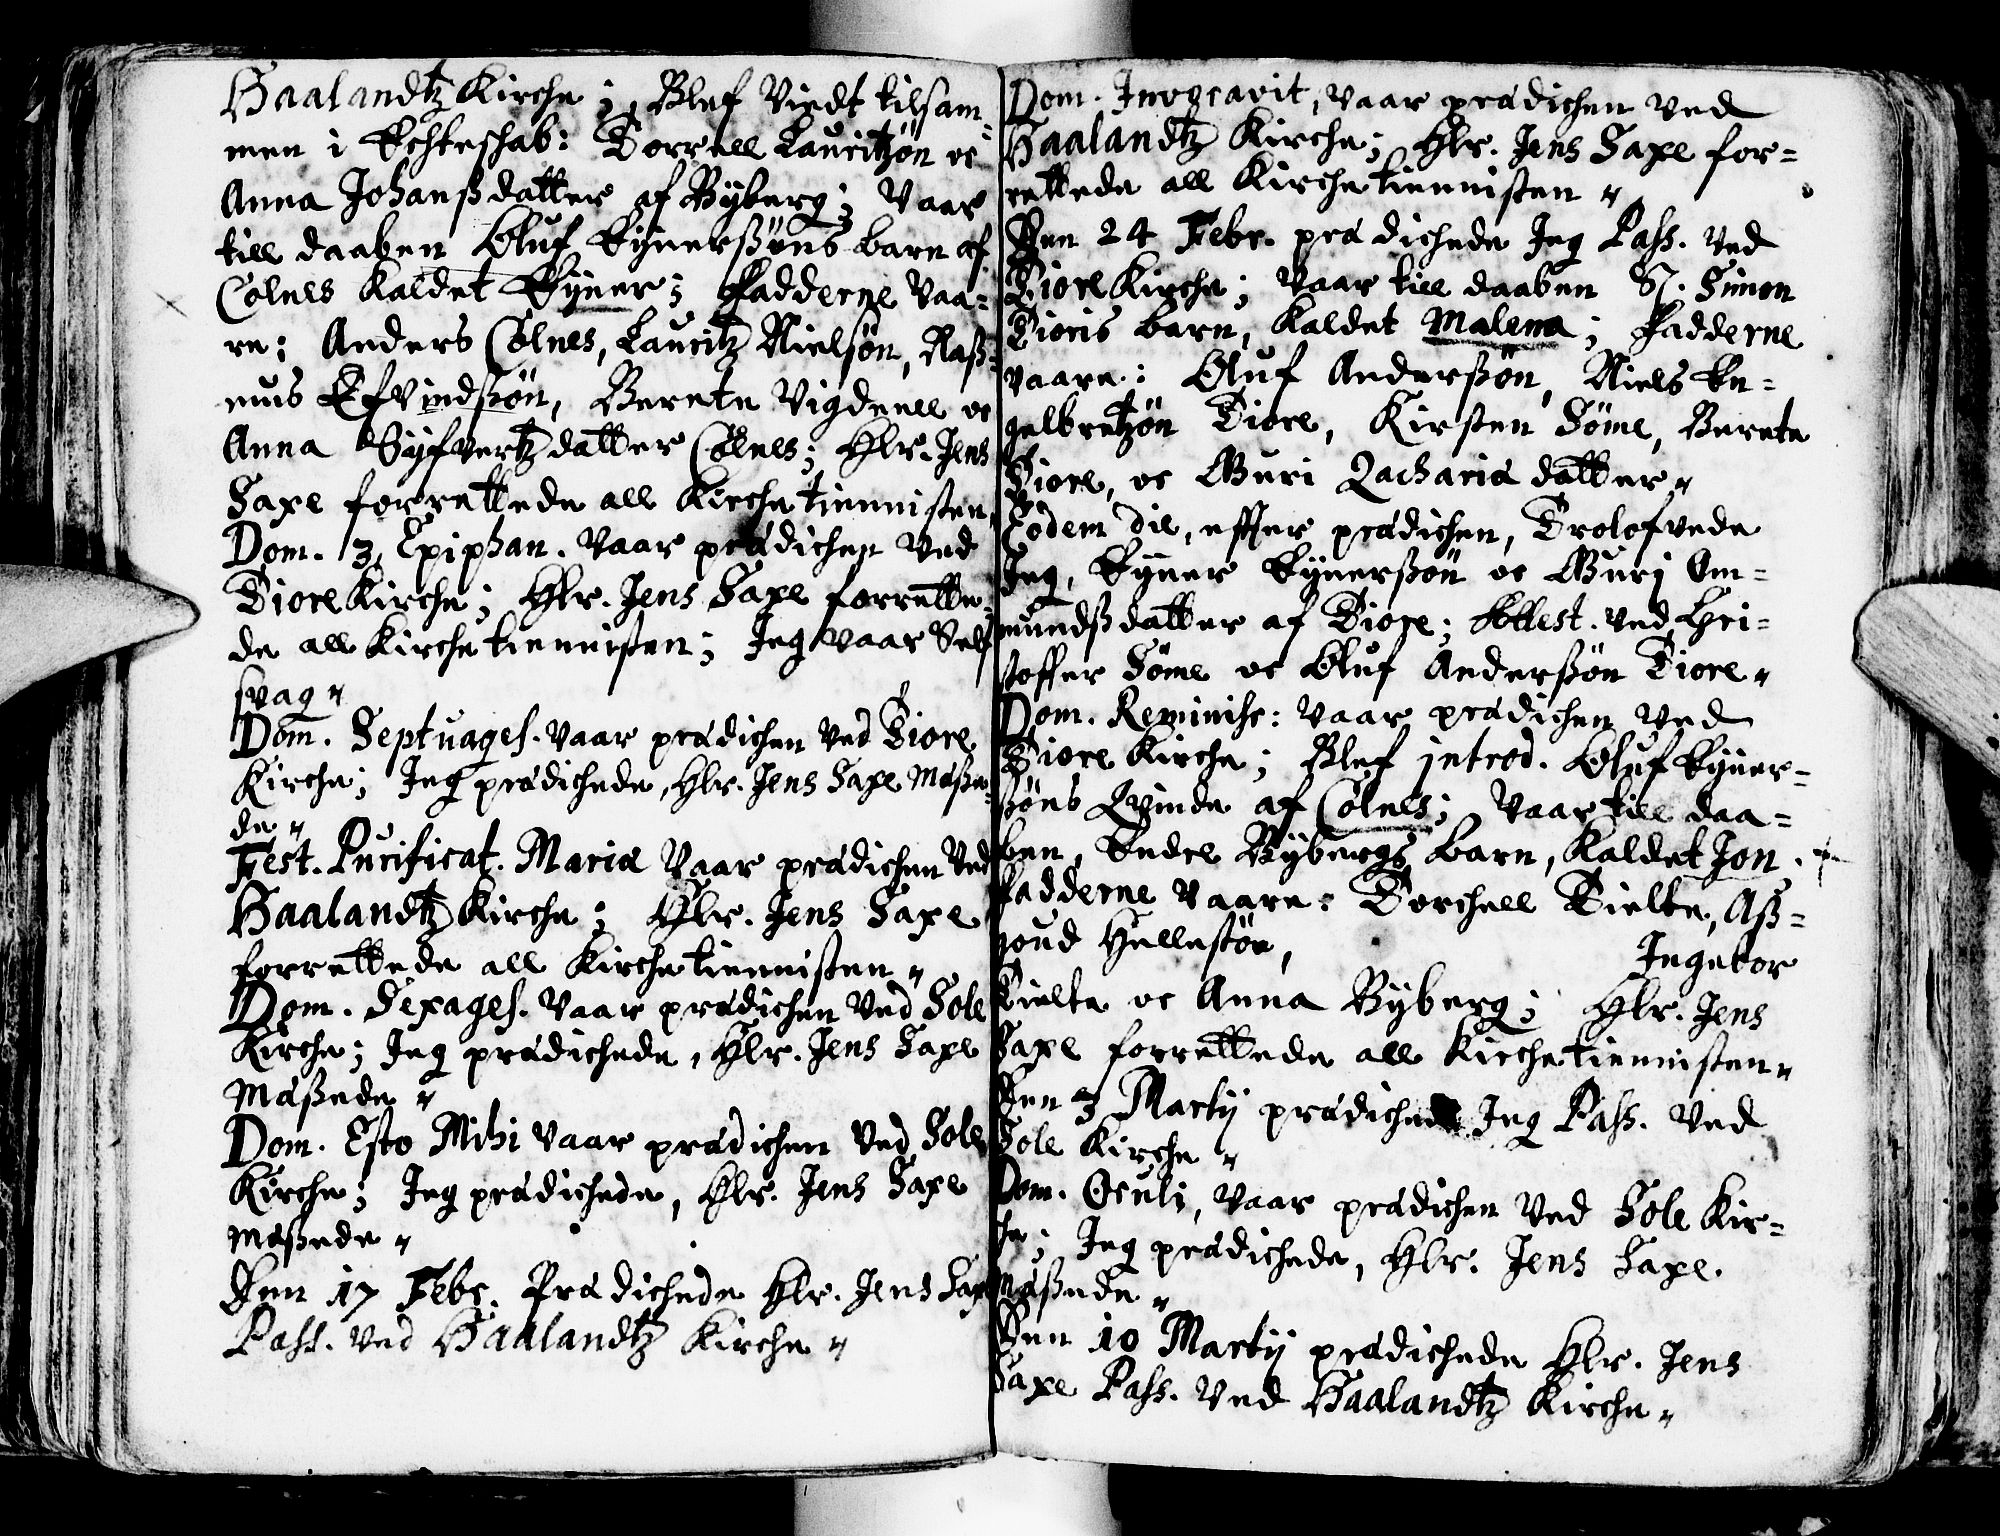 Haalandtz Kirche; Blef Viedt tilsam-
men i Echteschab: Torkell Lauritzön oc
Anna Johanßdatter af Ryberg; Vaar
till daaben Oluf Eynerßöns barn af
Colnes kaldet Eyner; Fadderne vaa-
re: Anders Colnes, Lauritz Nielsön, Raß-
mus Efvindßön, Berete Vigdeell oc
Anna Syfvertzdatter Colnes; Hlr. Jens
Saxe forrettede all Kirchetiennisten
Dom. 3, Epiphan. Vaar prædichen Ved
Tiore Kirche; Hlr. Jens Saxe forrette-
de all Kirchetiennisten; Jeg vaar Self
svag
Dom. Septuages. vaar prædichen Ved Tiore
Kirche; Jeg prædichede, Hlr. Jens Saxe Maße-
de
Fest. Purificat. Mariæ Vaar prædichen Ved
Haalandtz Kirche; Hlr. Jens Saxe
forrettede all Kirchetiennisten
Dom. Sexages. vaar prædichen Ved Sole
Kirche; Jeg prædichede, Hlr. Jens Saxe
Maßede
Dom. Esto Mihi vaar prædichen Ved Sole
Kirche; Jeg prædichede, Hlr. Jens Saxe
Maßede
Den 17 Febr. Prædichede Hlr. Jens Saxe
Pass. ved Haalandtz Kirche
Dom. Invocavit, vaar prædichen ved
Haalandtz Kirche; Hlr. Jens Saxe for-
rettede all Kirchetiennisten
Den 24 Febr. prædichede Jeg Pass. ved
Tiore Kirche; Vaar till daaben Sr. Simon
Tioris barn, kaldet Malena; Fadderne
vaare: Oluf Anderßön, Niels En-
gelbretzön Tiore, Kirsten Söme, Berete
Tiore, oc Guri Zachariæ datter
Eodem die, effter prædichen, Trolofvede
Jeg, Eyner Eynerßön oc Guri Om-
mundßdatter af Tiore; Attest. ved Chri-
stoffer Söme oc Oluf Anderßön Tiore
Dom. Reminisc: vaar prædichen Ved
Tiore Kirche; Blef introd. Oluf Eyner-
ßöns Qvinde af Colnes; Vaar till daa-
ben, Endre Rybergs barn, kaldet Jon.
Fadderne vaare: Torchell Tielte, Aß-
goud Hellestöe, Ingebor
Tielte oc Anna Ryberg; Hlr. Jens
Saxe forrettede all Kirchetiennisten
Den 3 Martij prædichede Jeg Pass. ved
Sole Kirche
Dom. Oculi, vaar prædichen ved Sole Kir-
che; Jeg prædichede, Hlr. Jens Saxe
Maßede
Den 10 Martij prædichede Hlr. Jens
Saxe Pass. ved Haalandtz Kirche